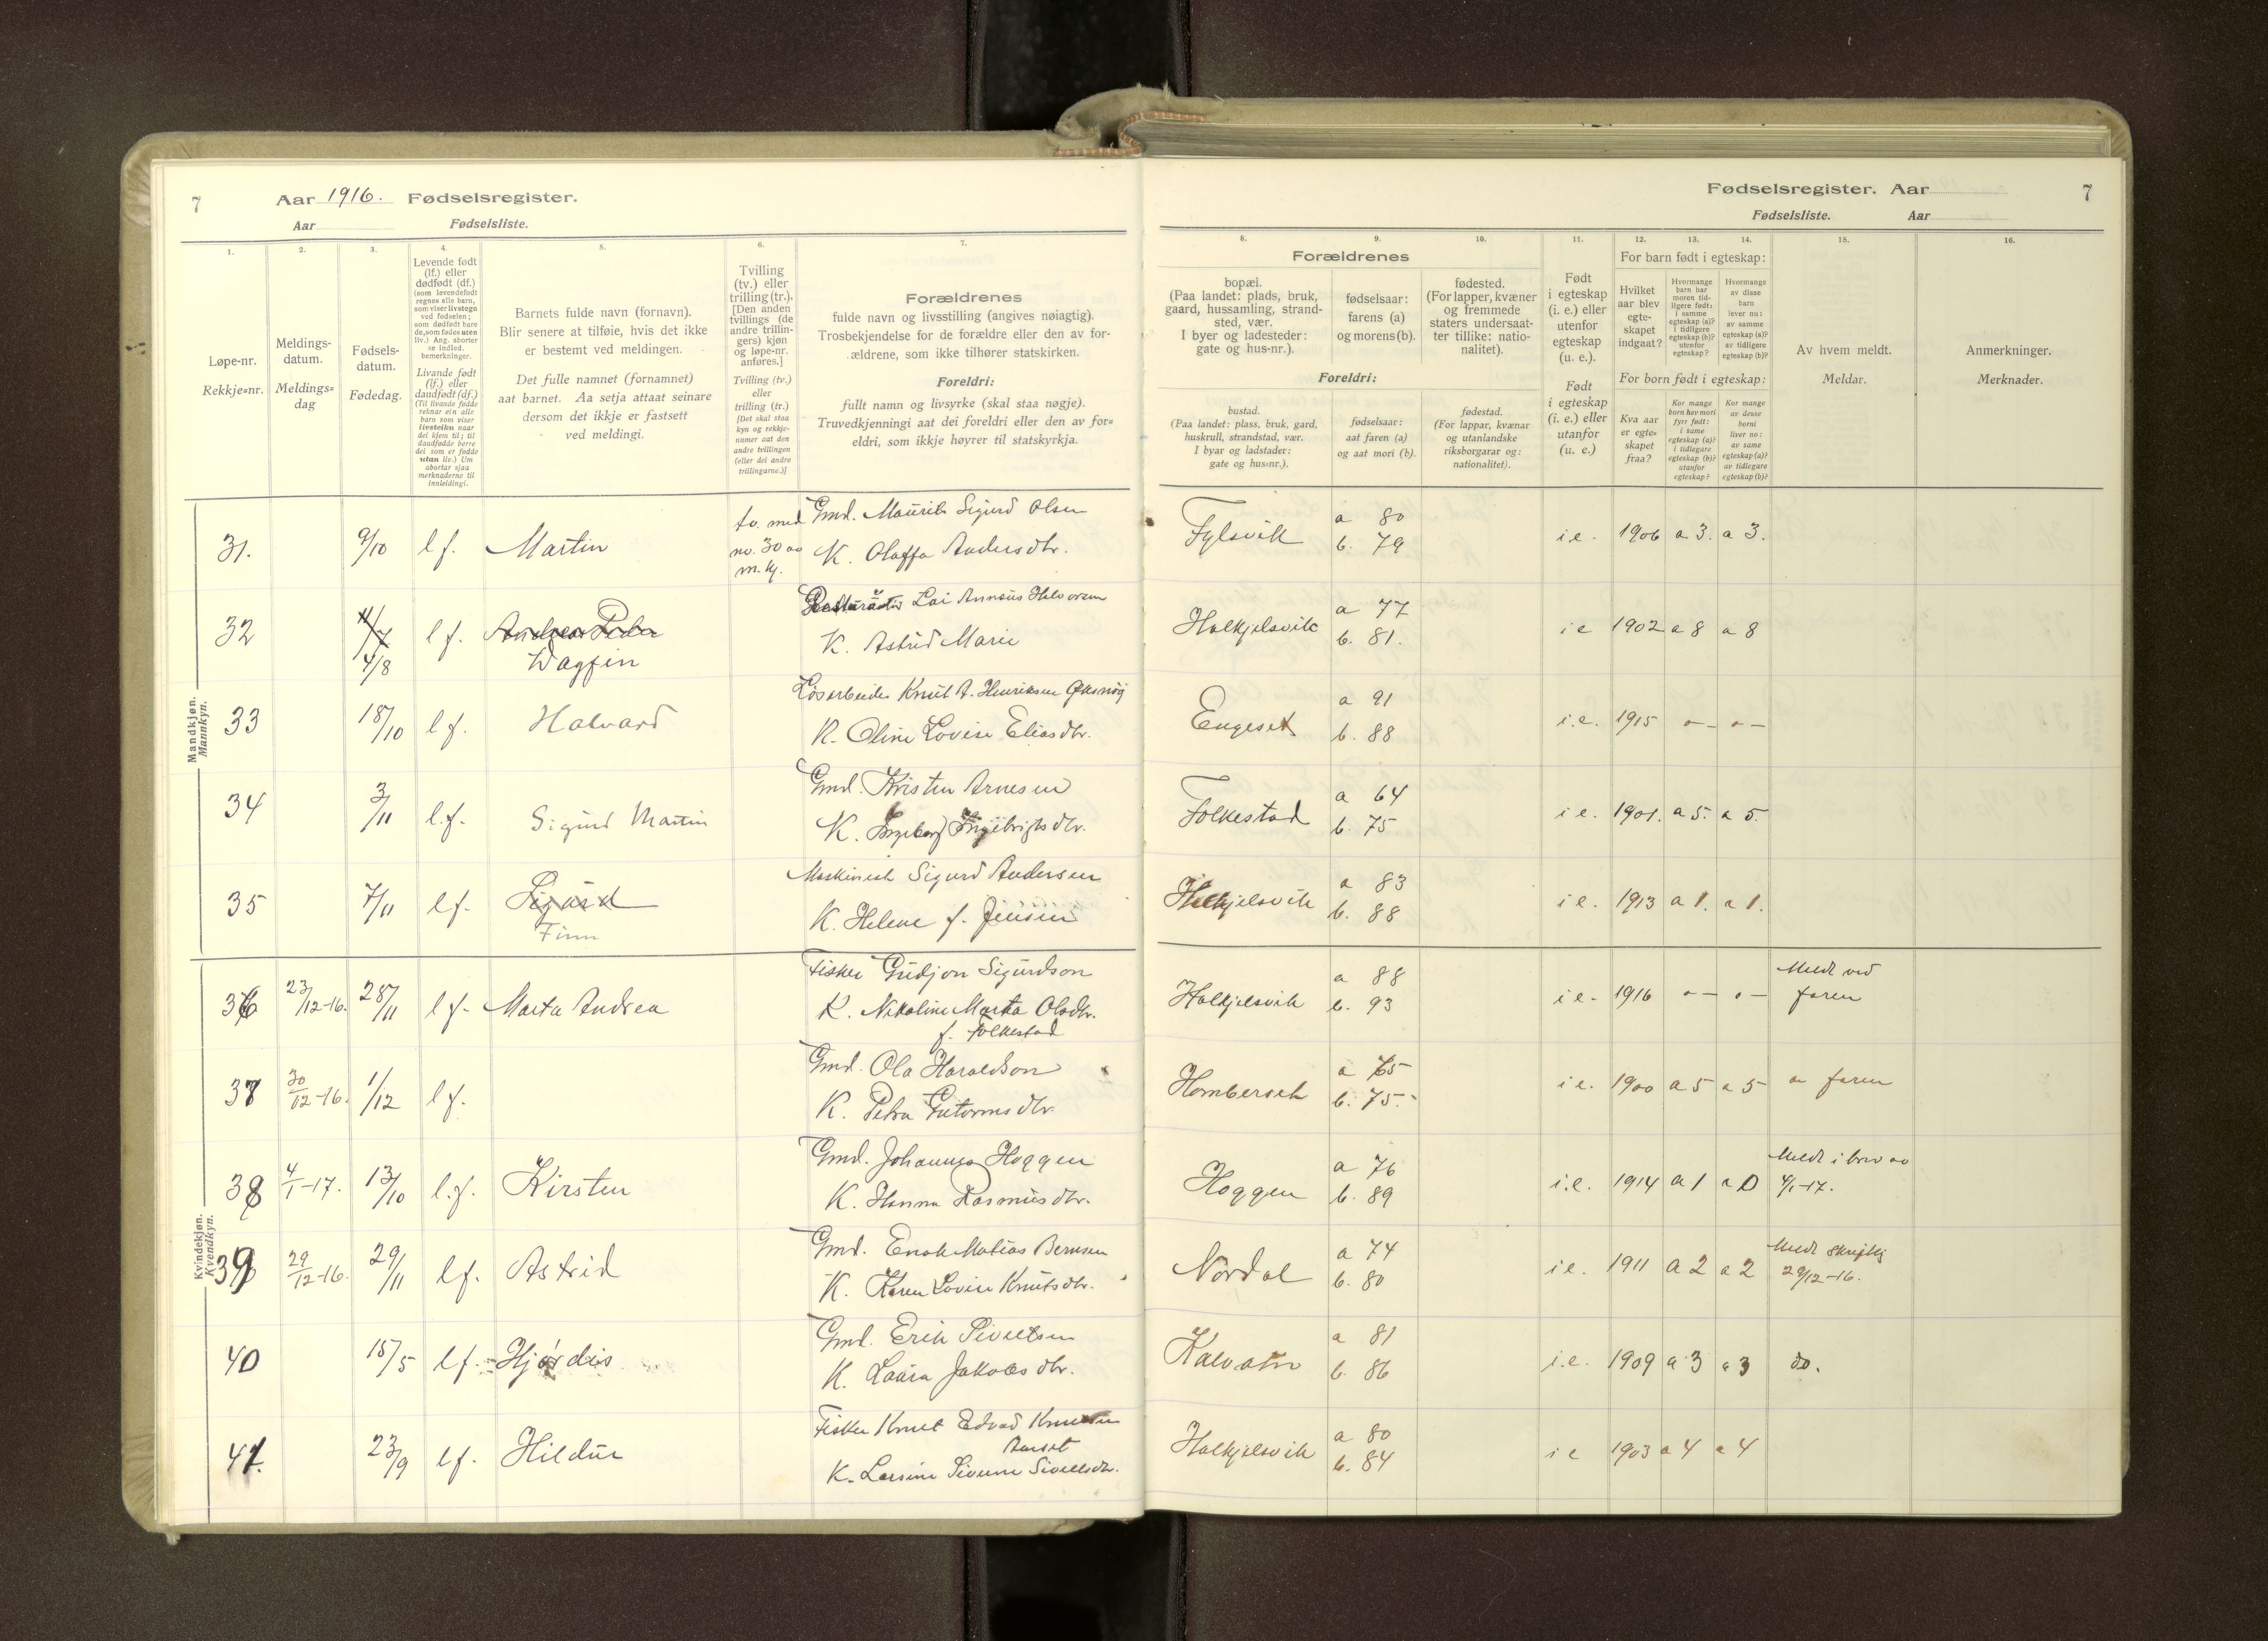 7
Aar 1916. Fødselsregister.
Aar Fødselsliste.
Fødselsregister. Aar 7
Fødselsliste. Aar
1. 2. 3. 4. 5. 6. 7. 8. 9. 10. 11. 12. 13. 14. 15. 16.
Løpe-nr.
Rekkje=nr.
Meldings-
datum.
Meldings=
dag
Fødsels-
datum.
Fødedag.
Levende født
(lf.) eller
dødfødt (df.)
(som levendefødt
regnes alle barn,
som viser livstegn
ved fødselen;
som dødfødt bare
de, som fødes uten
liv.) Ang. aborter
se indled.
bemerkninger.
Livande født
(lf.) eller
daudfødt (df.)
(Til livande fødde
reknar ein alle
barn som viser
livsteikn naar
dei kjem til; til
daudfødde berre
dei som er fødde
utan liv.) Um
abortar sjaa
merknaderne til
innleidingi.
Barnets fulde navn (fornavn).
Blir senere at tilføie, hvis det ikke
er bestemt ved meldingen.
Det fulle namnet (fornamnet)
aat barnet. Aa setja attaat seinare
dersom det ikkje er fastsett
ved meldingi.
Tvilling
(tv.) eller
trilling (tr.).
[Den anden
tvillings (de
andre trillin-
gers) kjøn
og løpe-nr.
anføres.]
Tvilling (tv.)
eller
trilling (tr.)
[Det skal staa
kyn og rekkje-
numer aat den
andre tvillingen
(eller dei andre
trillingarne.)]
Forældrenes
fulde navn og livsstilling (angives nøiagtig).
Trosbekjendelse for de forældre eller den av for-
ældrene, som ikke tilhører statskirken.
Foreldri:
fullt namn og livsyrke (skal staa nøgje).
Truvedkjenningi aat dei foreldri eller den av for=
eldri, som ikkje høyrer til statskyrkja.
Forældrenes
bopæl.
(Paa landet: plads, bruk,
gaard, hussamling, strand-
sted, vær.
I byer og ladesteder:
gate og hus-nr.).
fødselsaar:
farens (a)
og morens (b).
fødested.
(For lapper, kvæner
og fremmede
staters undersaat-
ter tillike: natio-
nalitet).
Foreldri:
bustad.
(Paa landet: plass, bruk, gard,
huskrull, strandstad, vær.
I byar og ladstader:
gate og hus=nr.).
fødselsaar:
aat faren (a)
og aat mori (b).
fødestad.
(For lappar, kvænar
og utanlandske
riksborgarar og:
nationalitet).
Født
i egteskap
(i. e.) eller
utenfor
egteskap
(u. e.).
Født
i egteskap
(i. e.) eller
utanfor
(u. e.)
For barn født i egteskap:
Hvilket
aar blev
egte-
skapet
indgaat?
Hvormange
barn har
moren tid-
ligere født:
i samme
egteskap (a)?
i tidligere
egteskap (b)?
utenfor
egteskap?
Hvormange
av disse
barn
lever nu:
av samme
egteskap (a)?
av tidligere
egteskap (b)?
For born født i egteskap:
Kva aar
er egte=
skapet
fraa?
Kor mange
born hev mori
fyrr født:
i same
egteskap (a)?
i tidlegare
egteskap (b)?
utanfor
egteskap?
Kor mange
av desse
borni
liver no:
av same
egteskap (a)?
av tidlegare
egteskap (b)?
Av hvem meldt.
Meldar.
Anmerkninger.
Merknader.
Mandkjøn.
Mannkyn.
31. 9/10 l f. Martin tv. med Gmd. Sigurd Olsen
no. 30 K. Olaffa Andersdtr.
Fylsvik a 80 b. 79 i e. 1906 a 3. a 3.
32 4/8 l f. Andreas Peder
Dagfin
K. Astrid Marie
Halkjelsvik a 77 b. 81. i e 1902 a 8 a 8
33 18/10 l f. Halvard Løsarbeider Knut A. Henriksen
K. Oline Lovise Eliasdtr.
Engeset a 91 b. 88 i.e. 1915
34 3/11 l.f. Sigurd Martin Gmd. Kristen Arnesen
K. Ingeborg Ingebrigtsdtr.
Folkestad a 64 b. 75 i e. 1901. a 5. a 5.
35 7/11 l f. Sigurd
Finn
Maskinist Sigurd Andersen
K. Helene f. Jensen
Halkjelsvik a 83 b. 88 i e. 1913 a 1. a 1.
Kvindekjøn.
Kvendkyn.
36 23/12-16. 28/11 l f. Marta Andrea Fisker Gudjon Sigurdson
K. Nikoline Marta Olsdtr.
f. Folkestad
Halkjelsvik a 88 b. 93 i e. 1916 Meldt ved
faren
37 30/12-16. 1/12 l f. Gmd. Ola Haraldson
K. Petra Gutormsdtr.
Homberset a 65 b. 75. i e. 1900 a 5 a 5 faren
38 4/1-17. 13/10 l.f. Kirsten Gmd. Johannes Hoggen
K. Hanna Rasmusdtr.
Hoggen a 76 b. 89 i.e. 1914 a 1 a 0 Meldt i brev av
4/1-17.
39 29/12-16. 29/11 l f. Astrid Gmd. Enok Matias Berntsen
K. Karen Lovise Knutsdtr.
Nordal a 74 b. 80 i e. 1911 a 2 a 2 Meldt skriftlig
29/12-16.
40 18/5 l f. Hjørdis Gmd. Erik Sivertsen
K. Laura Jakobsdtr.
Kalvatn a 81 b. 86 i.e. 1909 a 3 a 3 do.
41. 23/9 l f. Hildur Fisker Knut Edvard Knutsen
Aarset
K. Larsine Sivertsdtr.
Halkjelsvik a 80 b. 84 i e 1903 a 4 a 4